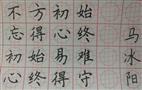 不忘初心
方得始终
初心易得
始终难守
马冰阳